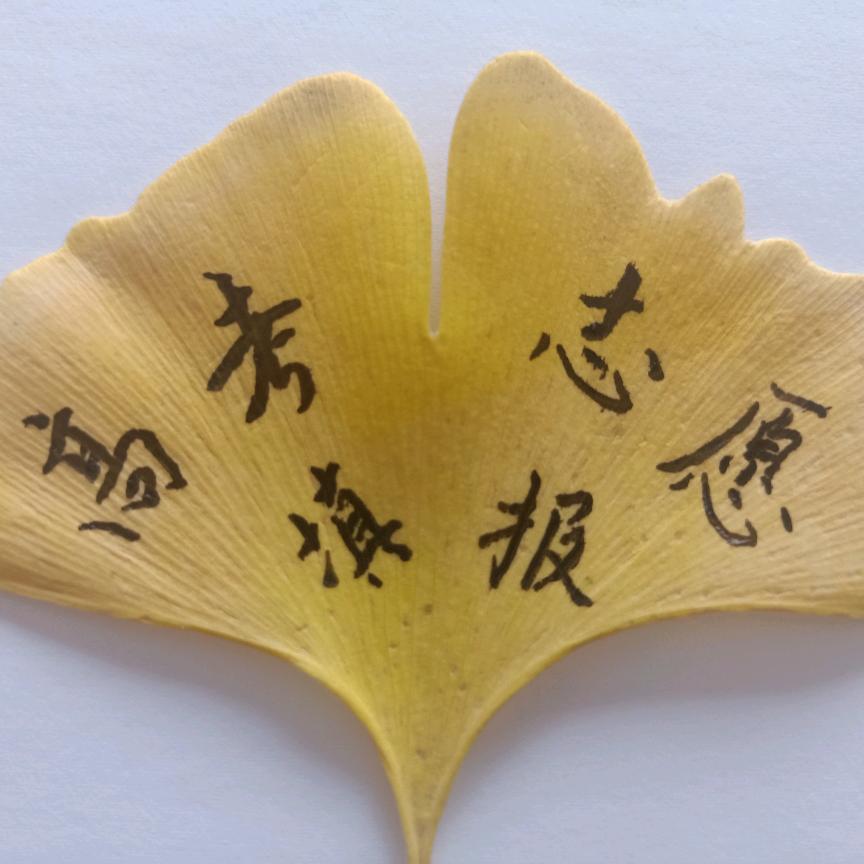 高考
填报
志愿